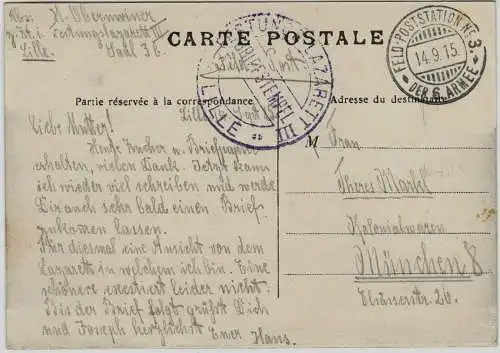 Abs. H. Obermeiner
z. Zt. i. Festungslazarett III
Lille. Saal 36.
CARTE POSTALE
FESTUNGS-LAZARETT III
LILLE
FELD-POSTSTATION No 3
14.9.15.
DER 6. ARMEE
Partie réservée à la correspondance
Adresse du destinataire
Liebe Mutter!
Heute Zucker u. Briefpapier
erhalten, vielen Dank. Jetzt kann
ich wieder viel schreiben und werde
Dir auch sehr bald einen Brief
zukommen lassen.
Für diesmal eine Ansicht von dem
Lazarett in welchem ich bin. Eine
schönere existiert leider nicht.
Bis der Brief folgt grüßt Dich
und Joseph herzlichst Euer Hans.
M
Frau
Theres Markl
Kolonialwaren
München 8
Elsässerstr. 26.